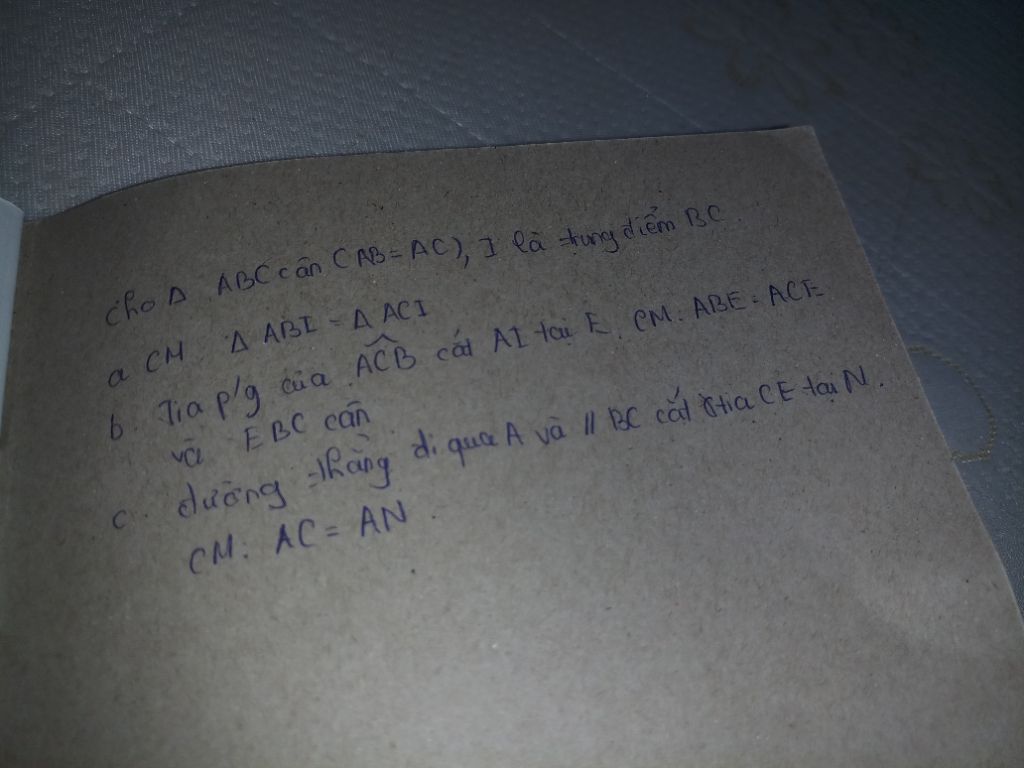 Cho Δ ABC cân (AB = AC), I là trung điểm BC.
a CM Δ ABI = Δ ACI
b. Tia p/g của ACB cắt AI tại E. CM: ABE = ACE
và EBC cân
c. đường thẳng đi qua A và // BC cắt tia CE tại N.
CM: AC = AN.